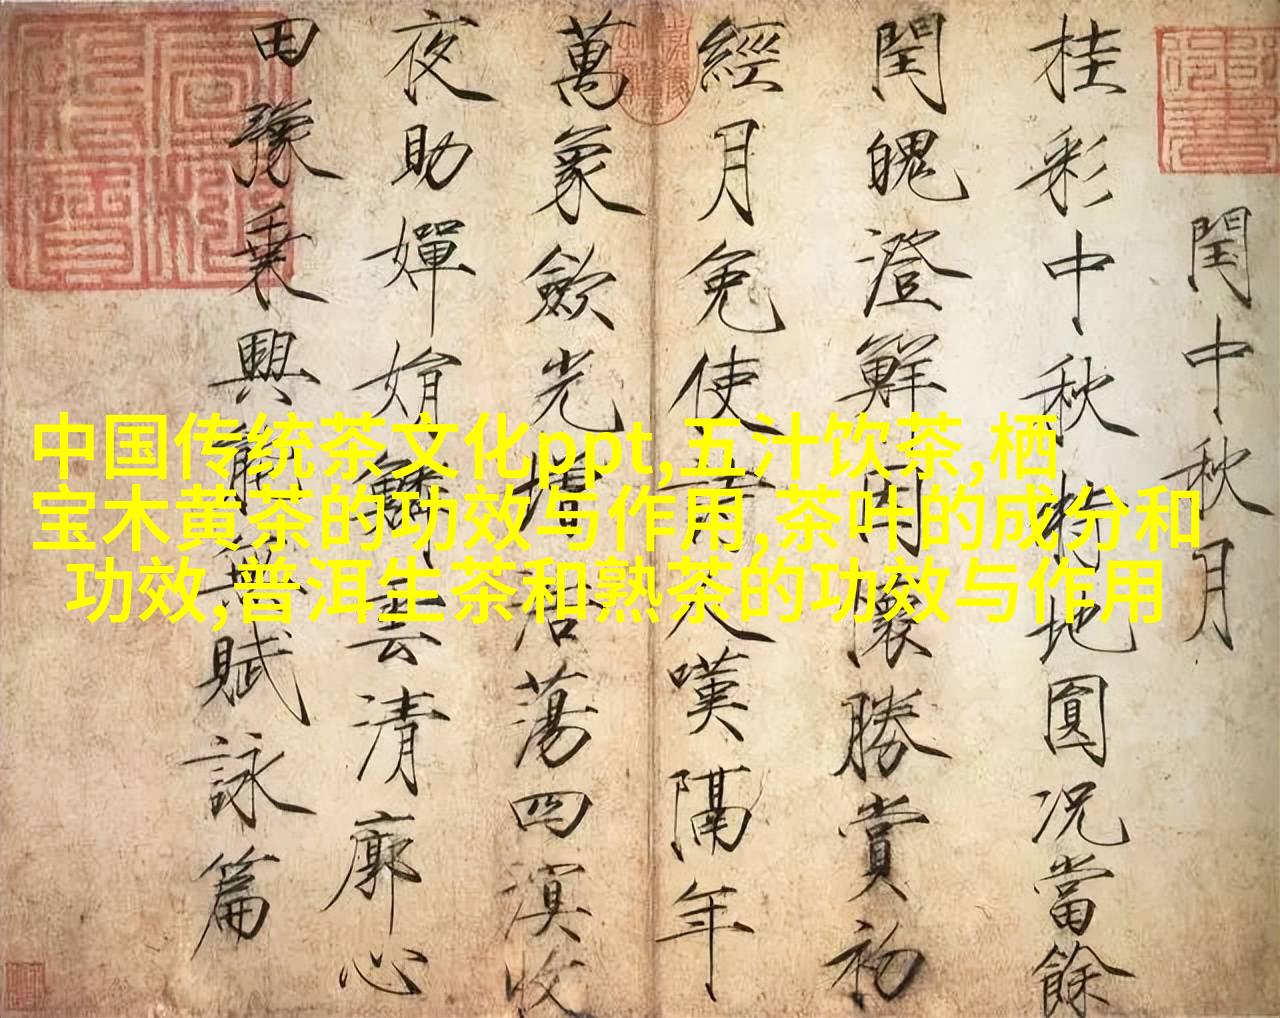 中国传统茶文化ppt,五汁饮茶,栖
宝木黄茶的功效与作用,茶叶的成分和
功效,普洱生茶和熟茶的功效与作用
閏中秋月
桂彩中秋特地圓况當餘
閏魄澄鮮因懷勝賞初
經月免使人嘆隔年
萬象歛光增浩蕩四溟收
夜助嬋娟鱗雲清廓心
田豫乗興能無賦詠篇